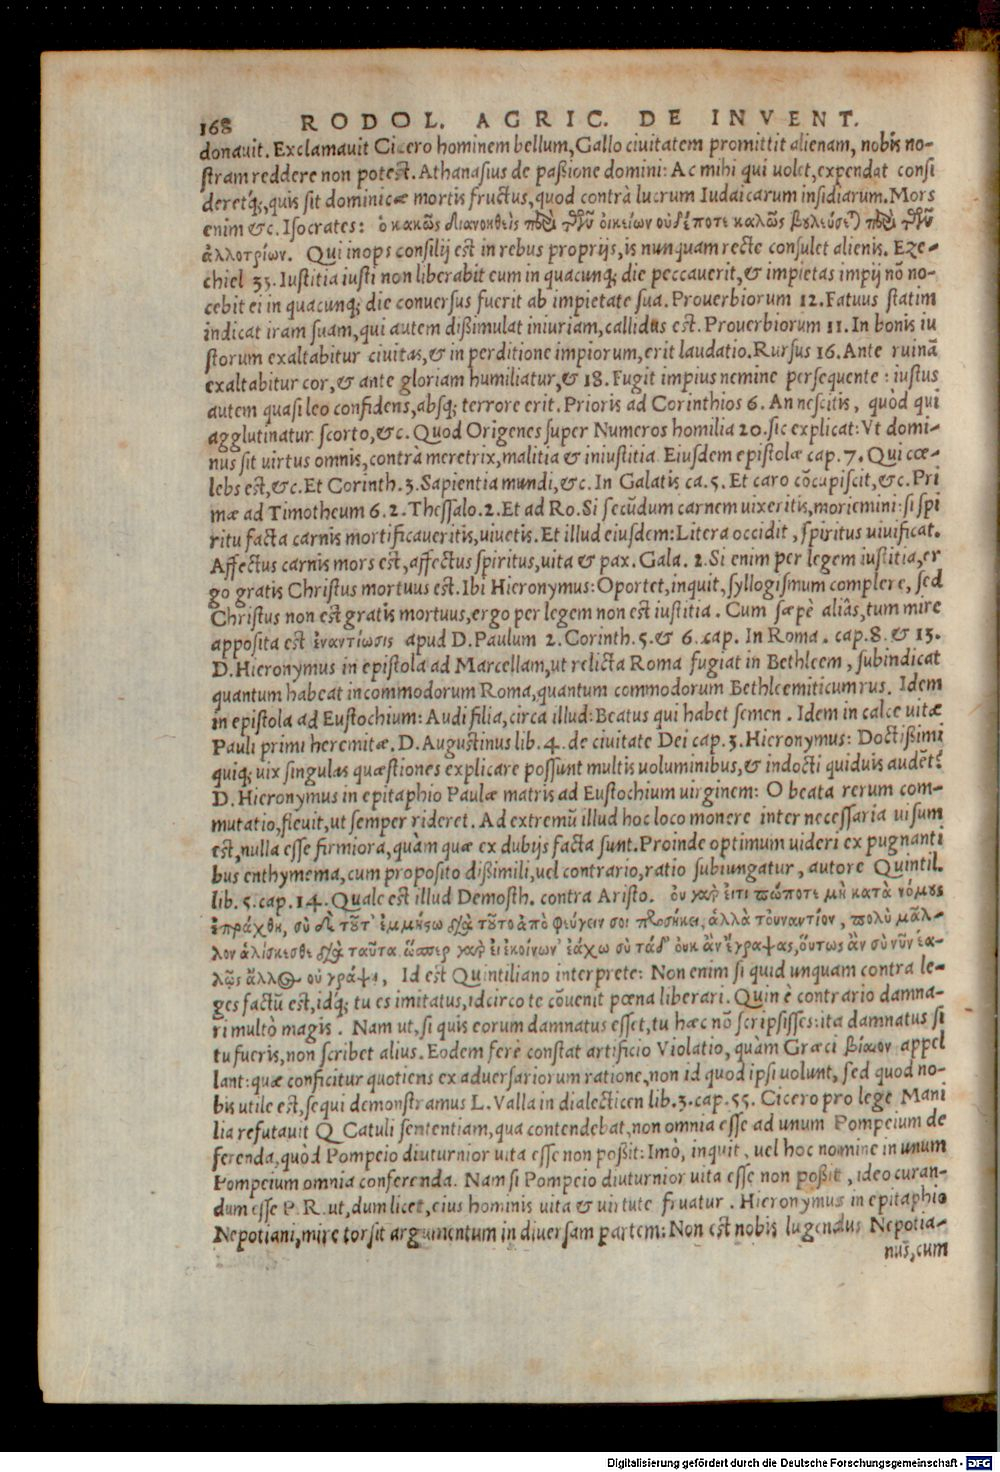 168 RODOL. AGRIC. DE INVENT.
donauit. Exclamauit Cicero hominem bellum, Gallo ciuitatem promittit alienam, nobis no-
stram reddere non potest. Athanasius de passione domini: Ac mihi qui uolet, expendat consi
deretq́;, quis sit dominicæ mortis fructus, quod contrà lucrum Iudaicarum insidiarum. Mors
enim &c. Isocrates: ὁ κακῶς διανοηθεὶς περὶ τῶν οἰκείων οὐδέποτε καλῶς βουλεύσεται περὶ τῶν
ἀλλοτρίων. Qui inops consilij est in rebus proprijs, is nunquam recte consulet alienis. Eze-
chiel 33. Iustitia iusti non liberabit eum in quacunq; die peccauerit, & impietas impij nō no-
cebit ei in quacunq; die conuersus fuerit ab impietate sua. Prouerbiorum 12. Fatuus statim
indicat iram suam, qui autem dissimulat iniuriam, callidus est. Prouerbiorum 11. In bonis iu
storum exaltabitur ciuitas, & in perditione impiorum, erit laudatio. Rursus 16. Ante ruinā
exaltabitur cor, & ante gloriam humiliatur, & 18. Fugit impius nemine persequente: iustus
autem quasi leo confidens, absq; terrore erit. Prioris ad Corinthios 6. An nescitis, quòd qui
agglutinatur scorto, &c. Quod Origenes super Numeros homilia 20. sic explicat: Vt domi-
nus sit uirtus omnis, contrà meretrix, malitia & iniustitia. Eiusdem epistolæ cap. 7. Qui cœ-
lebs est, &c. Et Corinth. 3. Sapientia mundi, &c. In Galatis ca. 5. Et caro cōcupiscit, &c. Pri
mæ ad Timotheum 6. 2. Thessalo. 2. Et ad Ro. Si secūdum carnem uixeritis, moriemini: si spi
ritu facta carnis mortificaueritis, uiuetis. Et illud eiusdem: Litera occidit, spiritus uiuificat.
Affectus carnis mors est, affectus spiritus, uita & pax. Gala. 2. Si enim per legem iustitia, er
go gratis Christus mortuus est. Ibi Hieronymus: Oportet, inquit, syllogismum complere, sed
Christus non est gratis mortuus, ergo per legem non est iustitia. Cum sæpè aliâs, tum mire
apposita est ἐναντίωσις apud D. Paulum 2. Corinth. 5. & 6. cap. In Roma. cap. 8. & 13.
D. Hieronymus in epistola ad Marcellam, ut relicta Roma fugiat in Bethleem, subindicat
quantum habeat incommodorum Roma, quantum commodorum Bethleemiticum rus. Idem
in epistola ad Eustochium: Audi filia, circa illud: Beatus qui habet semen. Idem in calce uitæ
Pauli primi heremitæ. D. Augustinus lib. 4. de ciuitate Dei cap. 3. Hieronymus: Doctissimi
quiq; uix singulas quæstiones explicare possunt multis uoluminibus, & indocti quiduis audēt?
D. Hieronymus in epitaphio Paulæ matris ad Eustochium uirginem: O beata rerum com-
mutatio, fleuit, ut semper rideret. Ad extremū illud hoc loco monere inter necessaria uisum
est, nulla esse firmiora, quàm quæ ex dubijs facta sunt. Proinde optimum uideri ex pugnanti
bus enthymema, cum proposito dissimili, uel contrario, ratio subiungatur, autore Quintil.
lib. 5. cap. 14. Quale est illud Demosth. contra Aristo. οὐ γὰρ εἴτι πώποτε μὴ κατὰ νόμους
ἐπράχθη, σὺ δὲ τοῦτ' ἐμιμήσω διὰ τοῦτο ἀποφεύγειν σοι προσήκει, ἀλλὰ τοὐναντίον, πολὺ μᾶλ-
λον ἁλίσκεσθε διὰ ταῦτα ὥσπερ γὰρ εἰ ἐκείνων ἑάλω σὺ τάδ' οὐκ ἂν ἔγραψας, οὕτως ἂν σὺ νῦν ἑα-
λῷς ἄλλος οὐ γράψει, Id est Quintiliano interprete: Non enim si quid unquam contra le-
ges factū est, idq́; tu es imitatus, idcirco te cōuenit pœna liberari. Quin è contrario damna-
ri multò magis. Nam ut, si quis eorum damnatus esset, tu hæc nō scripsisses: ita damnatus si
tu fueris, non scribet alius. Eodem ferè constat artificio Violatio, quàm Græci βίαιον appel
lant: quæ conficitur quotiens ex aduersariorum ratione, non id quod ipsi uolunt, sed quod no-
bis utile est, sequi demonstramus L. Valla in dialecticen lib. 3. cap. 55. Cicero pro lege Mani
lia refutauit Q. Catuli sententiam, qua contendebat, non omnia esse ad unum Pompeium de
ferenda, quòd Pompeio diuturnior uita esse non possit: Imò, inquit, uel hoc nomine in unum
Pompeium omnia conferenda. Nam si Pompeio diuturnior uita esse non possit, ideo curan-
dum esse P. R. ut, dum licet, eius hominis uita & uirtute fruatur. Hieronymus in epitaphio
Nepotiani, mire torsit argumentum in diuersam partem: Non est nobis lugendus Nepotia-
nus, cum
Digitalisierung gefördert durch die Deutsche Forschungsgemeinschaft - DFG